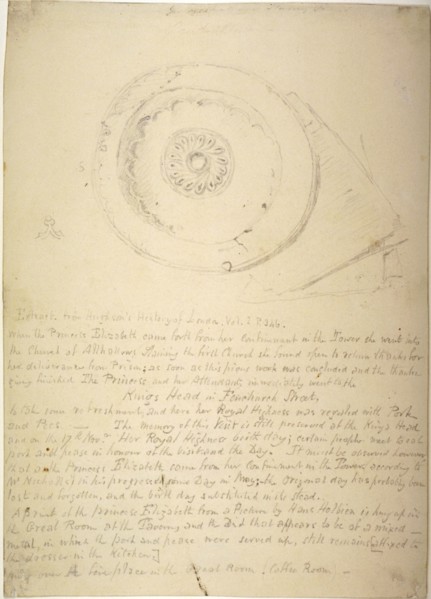 Extract from Hughson's History of London. Vol. 2. P. 346.
when the Princess Elizabeth came forth from her Confinement in the Tower she went into
the Church of Allhallows Staining the first Church she found open to return thanks for
her deliverance from Prison; as soon as this pious work was concluded and the thanks
giving finished The Princess and her Attendants immediately went to the
Kings Head in Fenchurch Street,
to take some refreshment, and here her Royal Highness was regaled with Pork
and Peas — The memory of this Visit is still preserved at the Kings Head
and on the 17th Novr Her Royal Highness birth day; certain people meet to eat
pork and pease in honour of the visit and the Day. It must be observed however
that as the Princess Elizabeth came from her Confinement in the Tower, according to
Mr Nichols, in his progresses, some Day in May, the original day has probably been
lost and forgotten, and the birth day substituted in its stead.
A print of the Princess Elizabeth from a Picture by Hans Holbein is hung up in
the Great Room of the Tavern, and the Dish that appears to be of a mixed
metal, in which the pork and pease were served up, still remains affixed to
the dresser in the Kitchen]
over the fire place in the Coffee Room —